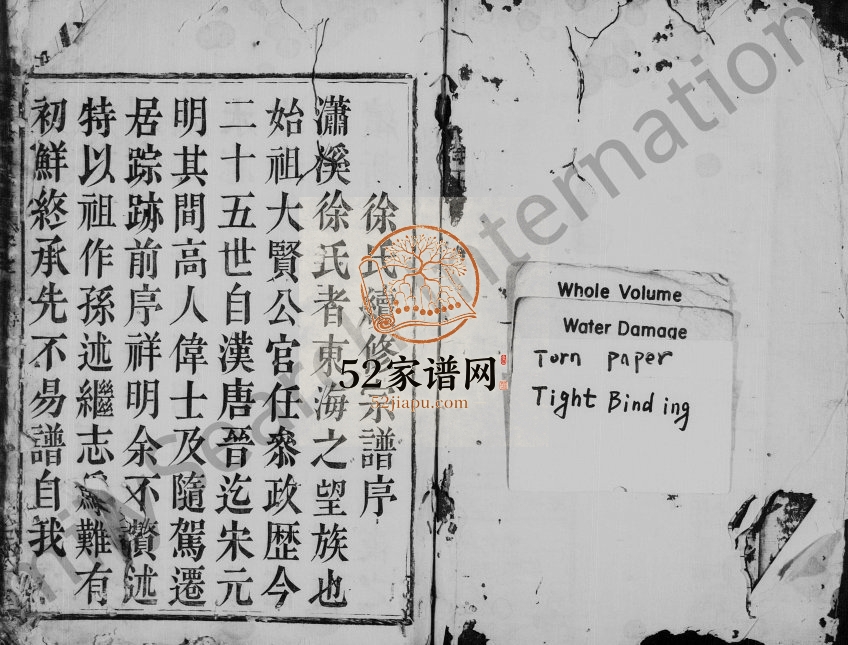 徐氏續修宗譜序
瀟溪徐氏者東海之望族也
始祖大賢公官任叅政歷今
二十五世自漢唐晉迄宋元
明其間高人偉士及隨駕遷
居踪跡前序祥明余不贅述
特以祖作孫述繼志難有
初鮮終承先不易譜自我
52家谱网
52jiapu.com
Whole Volume
Water Damage
Torn paper
Tight Binding
FamilySearch International